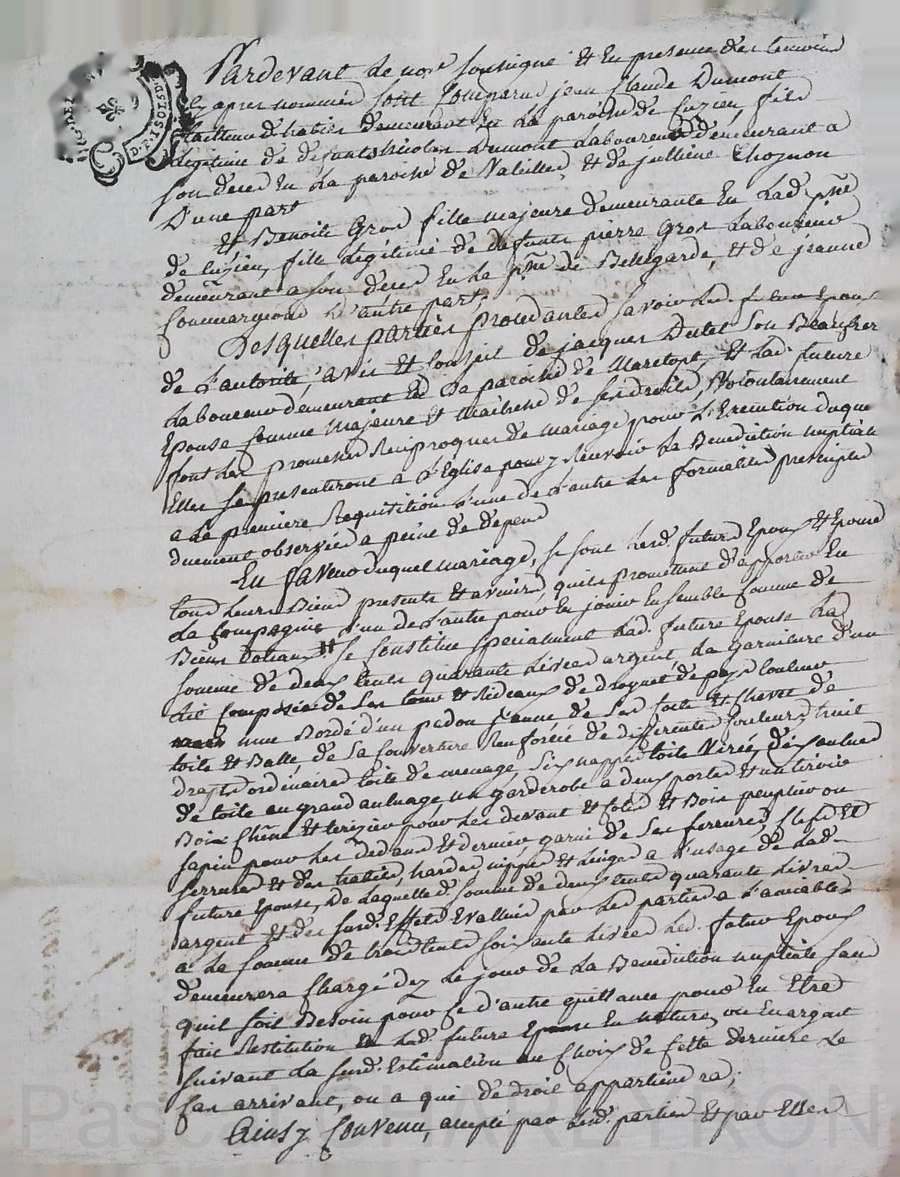 Pardevant le nore soussigné & En presence des temoins
cy apres nommés sont Comparus jean Claude Dumont
tailleur d'habits demeurant En La paroche de Cuzieu fils
Légitime de defunt Nicolas Dumont Laboureur demeurant a
son deces En La paroche de Valeilles, & de jullienne Chognon
D'une part
Et Benoite Gros fille majeure demeurante En Lad. psse
de Cuzieu, fille Légitime de defunts pierre Gros Laboureur
demeurant a son deces En La psse de Bellegarde, & de jeanne
D'autre part.
Desquelles parties procedantes savoir Led. futur Epoux
de L'autorité, avis et Conseil de jacques Dutel son Beaufrere
Laboureur demeurant En La paroche de Maretopt, & Lad. future
Epouse Comme Majeure et Maitresse de ses droits, Volontairement
font Les promesses Reciproques de mariage, pour L'Execution duquel
Elles se presenteront a L'Eglise pour y Recevoir La Benediction nuptiale
a La premiere Requisition L'une de L'autre Les formalités prescriptes
duement observées a peine de depens
En faveur duquel mariage, se sont Lesd. futurs Epoux & Epouse
tous leurs Biens presents et avenirs, quils promettent d'apporter En
La Compagnie L'un de L'autre pour En jouir Ensemble Comme de
Biens dotaux. & se Constitue specialement Lad. future Epouse La
somme de deux Cents quarante Livres argent La Garniture d'un
Lit Composée de Ses tour & Rideaux de droguet de pays Couleur
mure Bordé d'un padou jaune de Ses Coite & Chevet de
toile & Balle, de Sa Couverture Renforcée de differente Couleurs, huit
draps ordinaire toile de menage, Six nappes toile Virée, dix aulnes
de toile au grand aulnage, un garderobe a deux portes & un tiroir
Bois Chêne & Cerizier pour Les devant & Cotés & Bois peuplier ou
sapin pour Les dedans Et derrier garni de Ses ferrures Clefs &
serrures & des habits, hardes, nippes & Linges a L'usage de Lad.
future Epouse, de Laquelle somme de deux Cents quarante Livres
argent & des susd. Effets Evallués par Les parties a L'amiable
a La somme de trois Cents soixante Livres Led. futur Epoux
demeurera Chargé dez Le jour de La Benediction nuptiale sans
quil soit Besoin pour Ce d'autre quittance pour En Etre
fait Restitution a Lad. future Epouse En nature, ou En argent
suivant La susd. Estimation au Choix de Cette derniere Le
Cas arrivant, ou a qui de droit appartiendra;
Ainsy Convenu, accepté par Lesd. parties Et par Elles